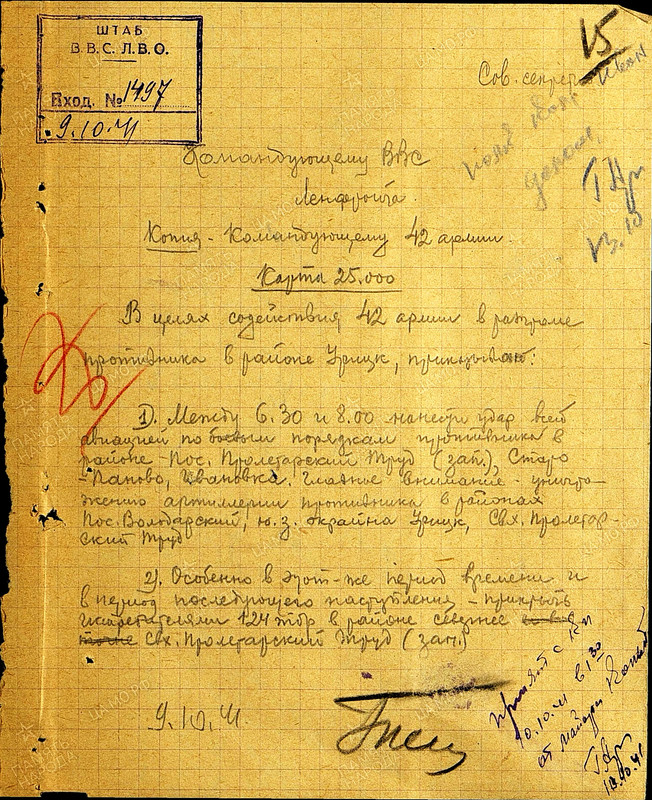 ШТАБ
В.В.С. Л.В.О.
Вход. № 1497
9.10.41
15
Сов. секретно
Командующему ВВС
Ленфронта.
Копия - Командующему 42 армии.
Карта 25.000
В целях содействия 42 армии в разгроме
противника в районе Урицк, приказываю:
1). Между 6.30 и 8.00 нанести удар всей
авиацией по боевым порядкам противника в
районе - Пос. Пролетарский Труд (зап.), Старо
-Паново, Ивановка. Главное внимание - уничто-
жению артиллерии противника в районах
Пос. Володарский, ю.з. окраина Урицк, Свх. Пролетар-
ский Труд
2). Особенно в этот-же период времени и
в период последующего наступления - прикрыть
истребителями 124 тбр в районе севернее
Свх. Пролетарский Труд (зап.)
9.10.41.
13.10
Принят с
10.10.41 в 1 30
от майора
10.10.41